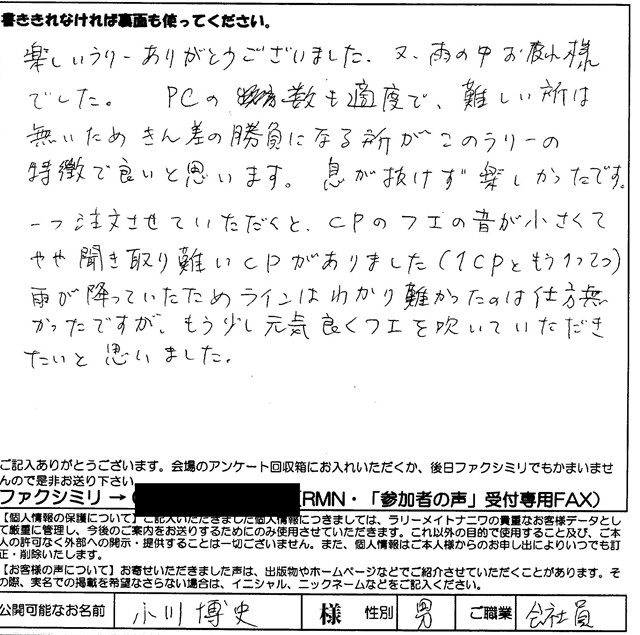 書ききれなければ裏面も使ってください。
楽しいラリーありがとうございました。又、雨の中お疲れ様
でした。 PCの数も適度で、難しい所は
無いためきん差の勝負になる所がこのラリーの
特徴で良いと思います。息が抜けず楽しかったです。
一つ注文させていただくと、CPのフエの音が小さくて
やや聞き取り難いCPがありました(1CPともう1つ2つ)
雨が降っていたためラインはわかり難かったのは仕方無
かったですが、もう少し元気良くフエを吹いていただき
たいと思いました。
ご記入ありがとうございます。会場のアンケート回収箱にお入れいただくか、後日ファクシミリでもかまいませ
んので是非お送り下さい。
ファクシミリ→(RMN・「参加者の声」受付専用FAX)
【個人情報の保護について】ご記入いただきました個人情報につきましては、ラリーメイトナニワの貴重なお客様データとし
て厳重に管理し、今後のご案内をお送りするためにのみ使用させていただきます。これ以外の目的で使用すること及び、ご本
人の許可なく外部への開示・提供することは一切ございません。また、個人情報はご本人様からのお申し出によりいつでも訂
正・削除いたします。
【お客様の声について】お寄せいただきました声は、出版物やホームページなどでご紹介させていただくことがあります。そ
の際、実名での掲載を希望なさらない場合は、イニシャル、ニックネームなどをご記入ください。
公開可能なお名前 小川博史 様 性別 男 ご職業 会社員